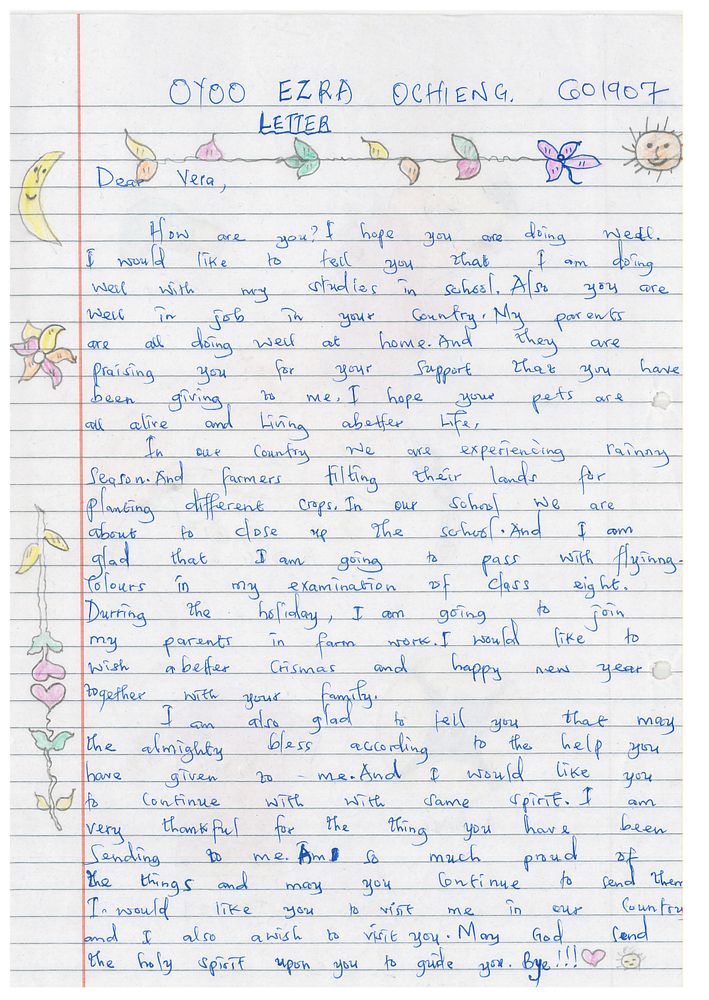 OYOO EZRA OCHIENG. G01907
LETTER
Dear Vera,
How are you? I hope you are doing well.
I would like to tell you that I am doing
well with my studies in school. Also you are
well in job in your Country. My parents
are all doing well at home. And they are
praising you for your support that you have
been giving to me. I hope your pets are
all alive and living abetter Life,
In our Country we are experiencing rainny
Season. And farmers tilting their lands for
planting different crops. In our school we are
about to close up the school. And I am
glad that I am going to pass with flyinng-
Colours in my examination of class eight.
Durring the holiday, I am going to join
my parents in farm work. I would like to
wish abetter Crismas and happy new year
together with your family.
I am also glad to tell you that may
the almighty bless according to the help you
have given to me. And I would like you
to Continue with with same spirit. I am
very thankful for the thing you have been
Sending to me. Am so much proud of
the things and may you Continue to send them
I would like you to visit me in our Country
and I also awish to visit you. May God send
the holy spirit upon you to guide you. Bye!!!